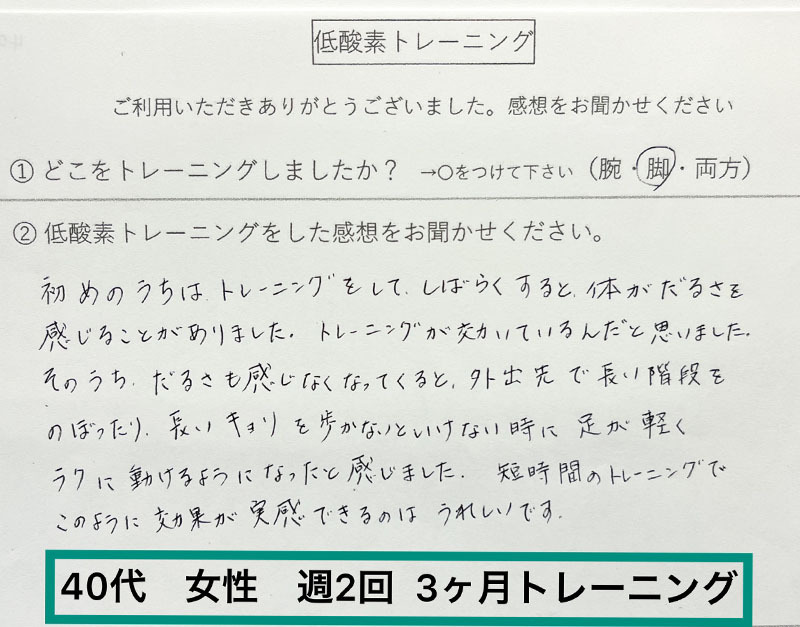 低酸素トレーニング
ご利用いただきありがとうございました。感想をお聞かせください
① どこをトレーニングしましたか？ →○をつけて下さい（腕・脚・両方）
② 低酸素トレーニングをした感想をお聞かせください。
初めのうちは、トレーニングをして、しばらくすると、体がだるさを
感じることがありました。トレーニングが効いているんだと思いました。
そのうち、だるさも感じなくなってくると、外出先で長い階段を
のぼったり、長いキョリを歩かないといけない時に足が軽く
ラクに動けるようになったと感じました。短時間のトレーニングで
このように効果が実感できるのはうれしいです。
40代 女性 週2回 3ヶ月トレーニング